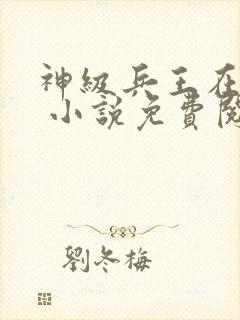 神級兵王在
小說免費閱
劉冬梅